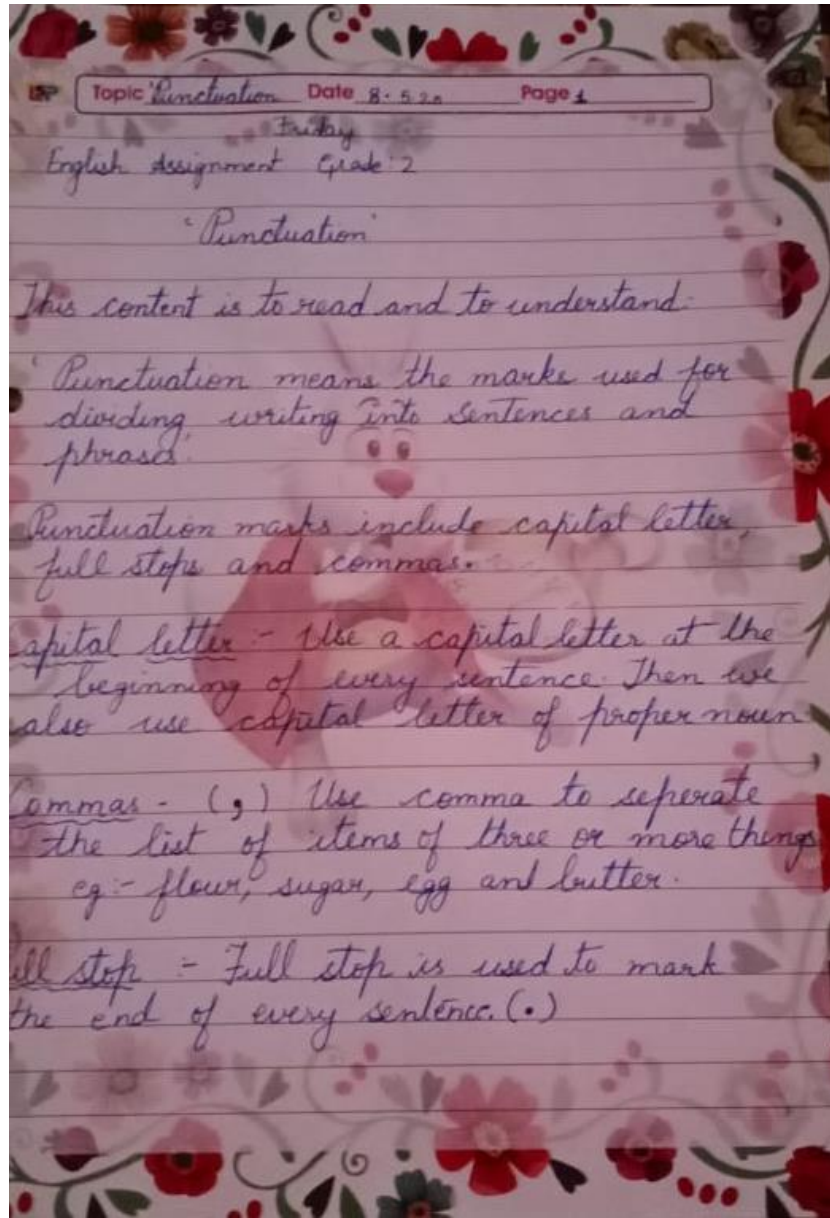 Topic 'Punctuation Date 8.5.20 Page 1
Friday
English Assignment Grade:2
'Punctuation'
This content is to read and to understand.
'Punctuation means the marks used for
dividing writing into sentences and
phrases'.
Punctuation marks include capital letter,
full stops and commas.
apital letter :- Use a capital letter at the
beginning of every sentence. Then we
also use capital letter of proper noun
Commas - (,) Use comma to seperate
the list of items of three or more things
eg:- flour, sugar, egg and butter.
ull stop :- Full stop is used to mark
the end of every sentence. (.)